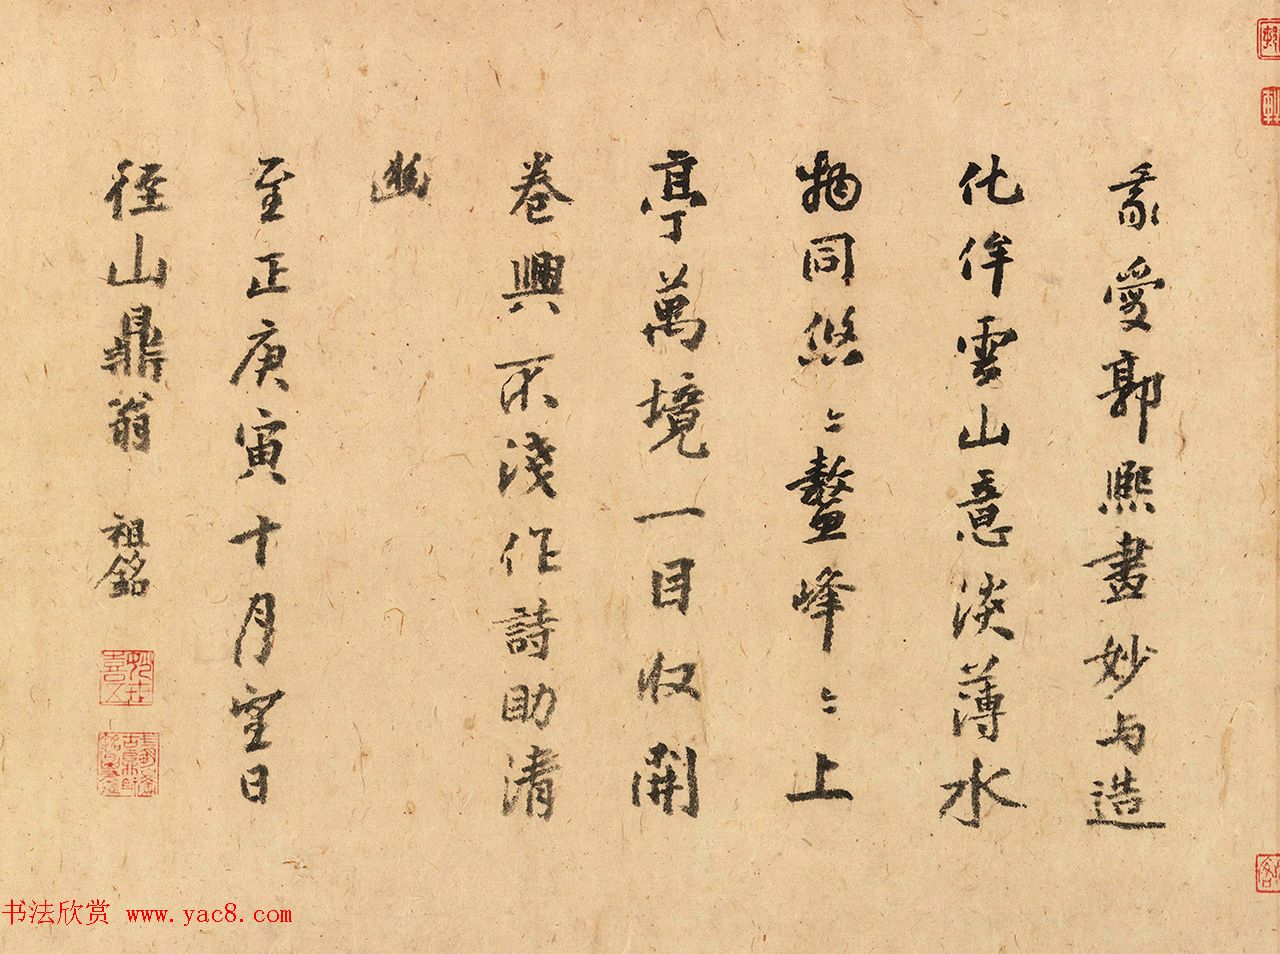 我愛郭熙畫妙与造
化侔雲山意淡薄水
物同悠〻鼇峰〻上
亭萬境一目收開
卷興不淺作詩助清
幽
至正庚寅十月望日
徑山鼎翁 祖銘
书法欣赏 www.yac8.com